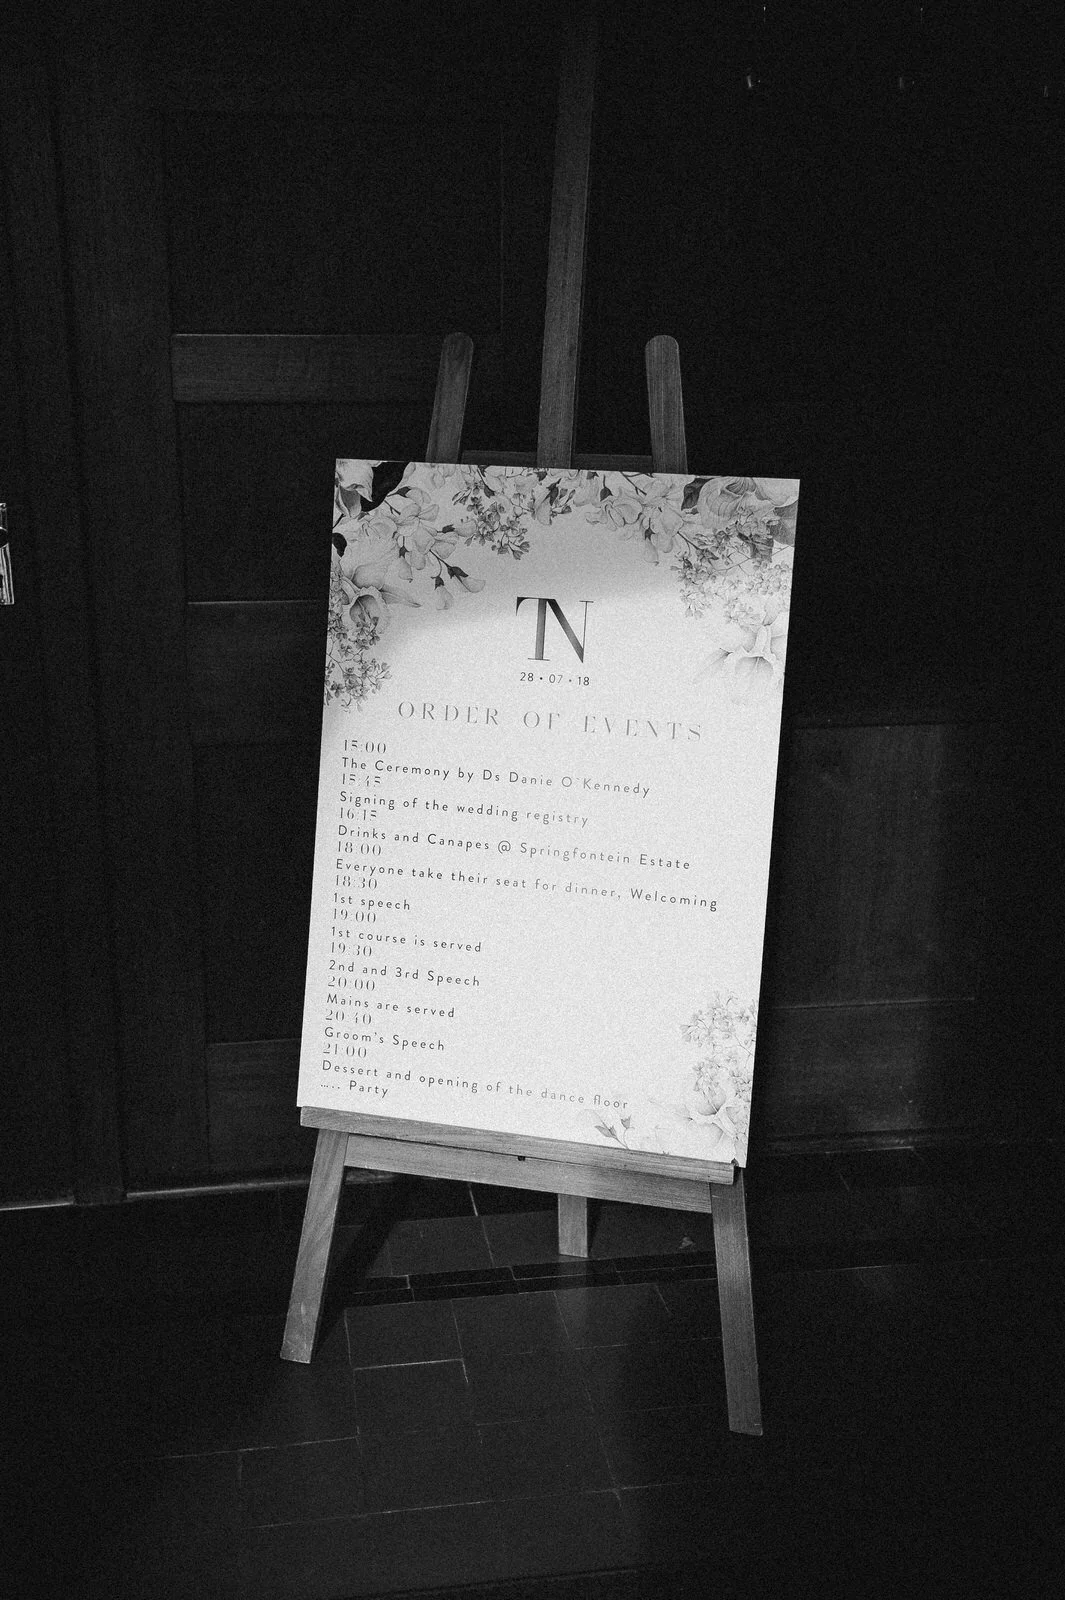 TN
28 • 07 • 18
ORDER OF EVENTS
15:00
The Ceremony by Ds Danie O`Kennedy
15:45
Signing of the wedding registry
16:15
Drinks and Canapes @ Springfontein Estate
18:00
Everyone take their seat for dinner, Welcoming
18:30
1st speech
19:00
1st course is served
19:30
2nd and 3rd Speech
20:00
Mains are served
20:40
Groom's Speech
21:00
Dessert and opening of the dance floor
..... Party